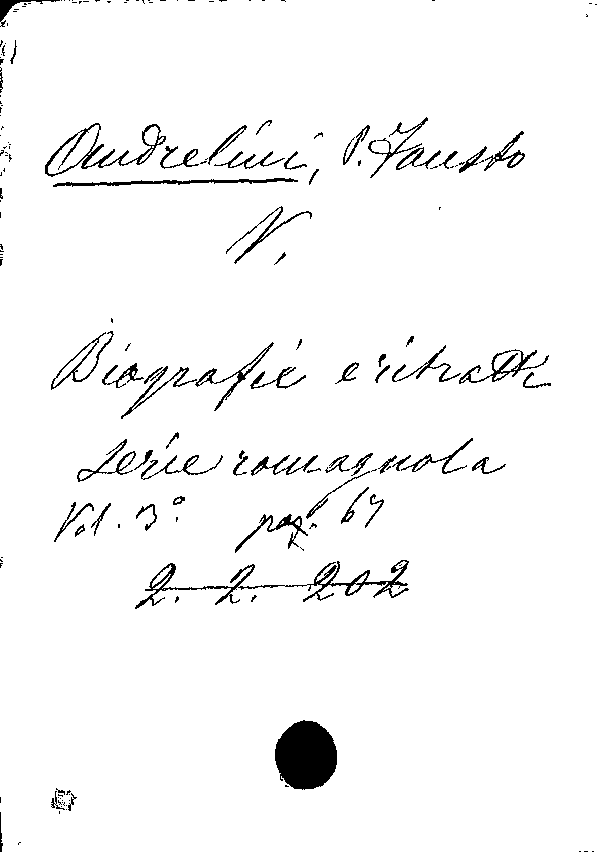 Andrelini, P. Fausto
V.
Biografie e ritratti
serie romagnola
Vol. 3° pag. 67
2. 2. 202